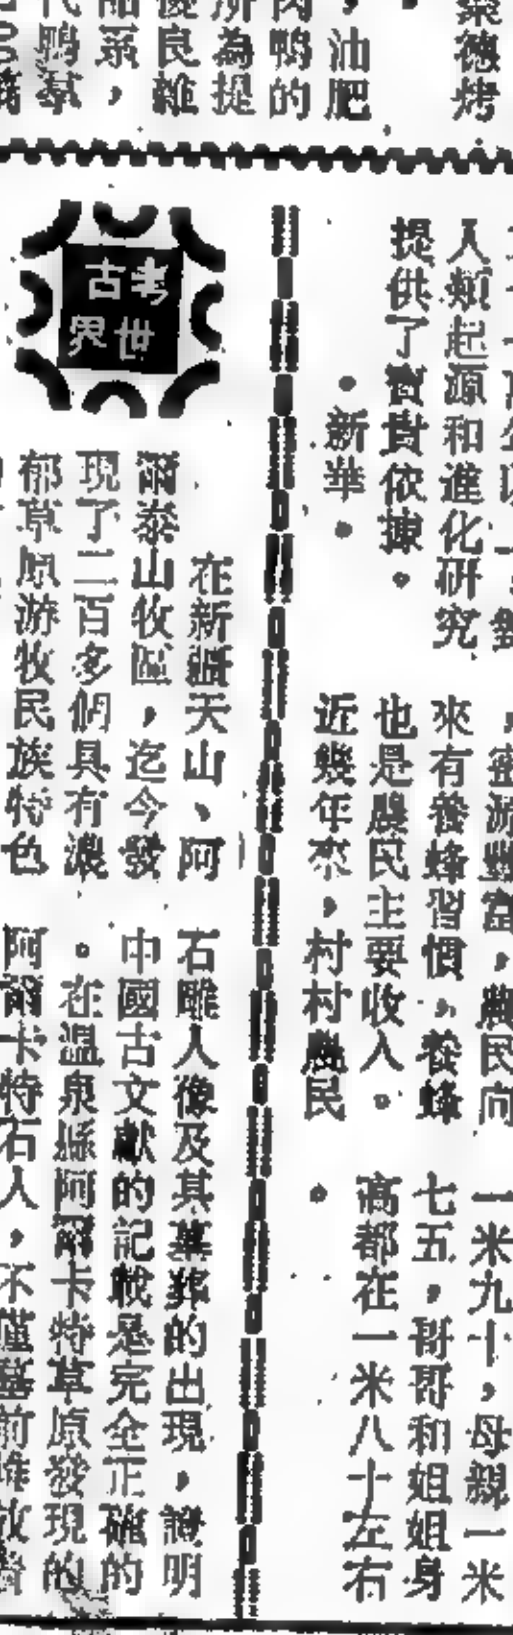 榮德烤
油肥
肉鴨的
所為提
優良雜
系，
代鴨
人類起源和進化研究
提供了寶貴依據。
·新華·
蜜源豐富，農民向
來有養蜂習慣，養蜂
也是農民主要收入。
近幾年來，村村農民
一米九十，母親一米
七五，哥哥和姐姐身
高都在一米八十左右
。
考古
世界
在新疆天山、阿
爾泰山牧區，迄今發
現了二百多個具有濃
郁草原游牧民族特色
石雕人像及其墓葬的出現，證明
中國古文獻的記載是完全正確的
。在溫泉縣阿爾卡特草原發現的
阿爾卡特石人，不僅墓前堆放着